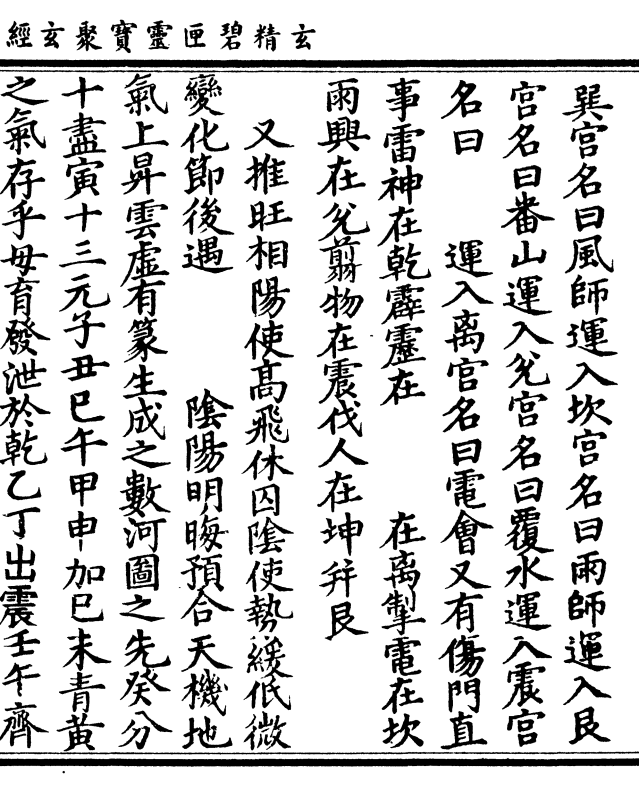 玄精碧匣靈寶聚玄經
巽宮名曰風師運入坎宮名曰雨師運入艮
宮名曰番山運入兊宮名曰覆水運入震宮
名曰　運入离宮名曰電會又有傷門直
事雷神在乾霹靂在　在离掣電在坎
雨興在兊翦物在震伐人在坤并艮
又推旺相陽使高飛休囚陰使勢緩低微
變化節後遇　陰陽明晦預合天機地
氣上昇雲虛有篆生成之數河圖之先癸分
十盡寅十三元子丑巳午甲申加巳未青黃
之氣存乎毋育發泄於乾乙丁出震壬午齊